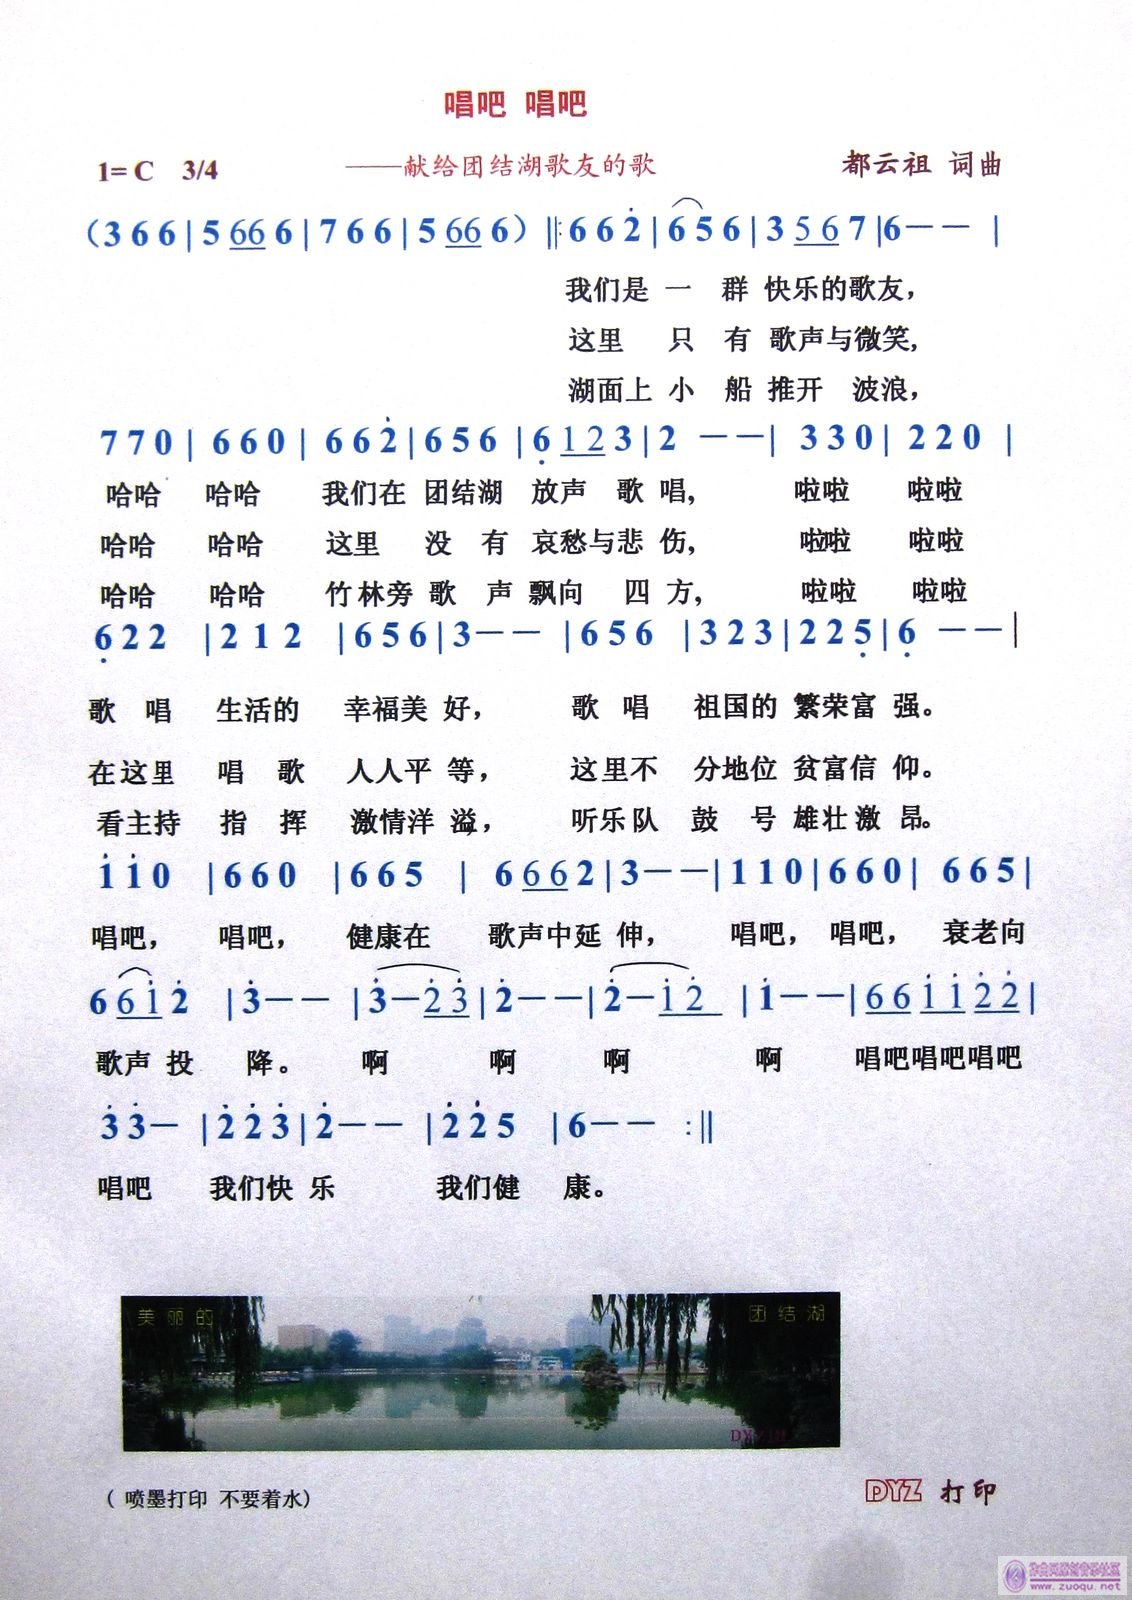 唱吧 唱吧
1= C 3/4 ——献给团结湖歌友的歌 都云祖 词曲
（3 6 6 | 5 66 6 | 7 6 6 | 5 66 6 ）‖: 6 6 2̇ | 6 5 6 | 3 5 6 7 | 6 — — |
我们是 一 群 快乐的歌友，
这里 只 有 歌声与微笑，
湖面上 小 船 推开 波浪，
7 7 0 | 6 6 0 | 6 6 2̇ | 6 5 6 | 6̣ 1 2 3 | 2 — — | 3 3 0 | 2 2 0 |
哈哈 哈哈 我们在 团结湖 放声 歌 唱， 啦啦 啦啦
哈哈 哈哈 这里 没 有 哀愁与悲 伤， 啦啦 啦啦
哈哈 哈哈 竹林旁 歌 声 飘向 四 方， 啦啦 啦啦
6̣ 2 2 | 2 1 2 | 6 5 6 | 3 — — | 6 5 6 | 3 2 3 | 2 2 5̣ | 6̣ — — |
歌 唱 生活的 幸福美 好， 歌 唱 祖国的 繁荣富 强。
在这里 唱 歌 人人平 等， 这里不 分地位 贫富信 仰。
看主持 指 挥 激情洋 溢， 听乐队 鼓 号 雄壮激 昂。
1̇ 1̇ 0 | 6 6 0 | 6 6 5 | 6 6 6 2 | 3 — — | 1 1 0 | 6 6 0 | 6 6 5 |
唱吧， 唱吧， 健康在 歌声中延 伸， 唱吧， 唱吧， 衰老向
6 6 1̇ 2̇ | 3̇ — — | 3̇ — 2̇ 3̇ | 2̇ — — | 2̇ — 1̇ 2̇ | 1̇ — — | 6 6 1̇ 1̇ 2̇ 2̇ |
歌声 投 降。 啊 啊 啊 啊 唱吧唱吧唱吧
3̇ 3̇ — | 2̇ 2̇ 3̇ | 2̇ — — | 2̇ 2̇ 5 | 6 — — :‖
唱吧 我们快 乐 我们健 康。
美丽的 团结湖
( 喷墨打印 不要着水)
DYZ 打印
作曲网原创音乐社区
www.zuoqu.net